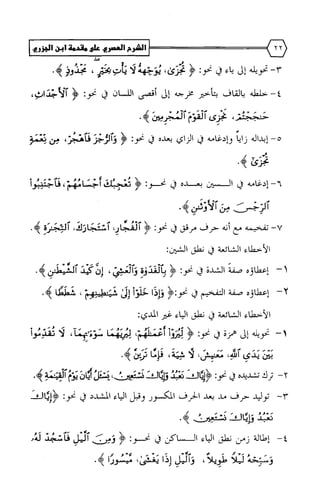 ٢٢ الشرح العصري على مقدمة ابن الجزري
٣- تحويله إلى ياء في نحو: ﴿ تُجْزَىٰ، يُوَجِّههُّ لَا يَأْتِ بِخَيْرٍ ، مَجْذُوذٍ ﴾.
٤- خلطه بالقاف بتأخير مخرجه إلى أقصى اللسان في نحو: ﴿ الْأَجْدَاثِ،
حَـٰجَجْتُمْ، نَجْزِى الْقَوْمَ الْمُجْرِمِينَ ﴾.
٥- إبداله زاياً وإدغامه في الزاي بعده في نحو: ﴿ وَالرُّجْزَ فَاهْجُرْ، مِن نِّعْمَةٍ
تُجْزَىٰ ﴾.
٦- إدغامه في السين بعده في نحو: ﴿ تُعْجِبُكَ أَجْسَامُهُمْ، فَاجْتَنِبُوا
الرِّجْسَ مِنَ الْأَوْثَـٰنِ ﴾.
٧- تفخيمه مع أنه حرف مرقق في نحو: ﴿ الْفُجَّارِ، اسْتَجَارَكَ، الشَّجَرَةَ ﴾.
الأخطاء الشائعة في نطق الشين:
١- إعطاؤه صفةَ الشدة في نحو: ﴿ بِالْغَدَوٰةِ وَالْعَشِيِّ، إِنَّ كَيْدَ الشَّيْطَـٰنِ ﴾.
٢- إعطاؤه صفة التفخيم في نحو: ﴿ وَإِذَا خَلَوْا إِلَىٰ شَيَـٰطِينِهِمْ ، شَطَطًا ﴾.
الأخطاء الشائعة في نطق الياء غير المدي:
١- تحويله إلى همزة في نحو: ﴿ لِّيُرَوْا أَعْمَـٰلَهُمْ، لِيُرِيَهُمَا سَوْءَٰتِهِمَا، لَا تُقَدِّمُوا
بَيْنَ يَدَىِ اللَّهِ، مَعَـٰيِشَ، لَّا شِيَةَ، فَإِمَّا تَرَيِنَّ ﴾.
٢- ترك تشديده في نحو: ﴿ إِيَّاكَ نَعْبُدُ وَإِيَّاكَ نَسْتَعِينُ، يَسْـَٔلُ أَيَّانَ يَوْمُ الْقِيَـٰمَةِ ﴾.
٣- توليد حرف مد بعد الحرف المكسور وقبل الياء المشدد في نحو: ﴿ إِيَّاكَ
نَعْبُدُ وَإِيَّاكَ نَسْتَعِينُ ﴾.
٤- إطالة زمن نطق الياء الساكن في نحو: ﴿ وَمِنَ الَّيْلِ فَاسْجُدْ لَهُ،
وَسَبِّحْهُ لَيْلًا طَوِيلًا، وَالَّيْلِ إِذَا يَغْشَىٰ، مَّيْسُورًا ﴾.